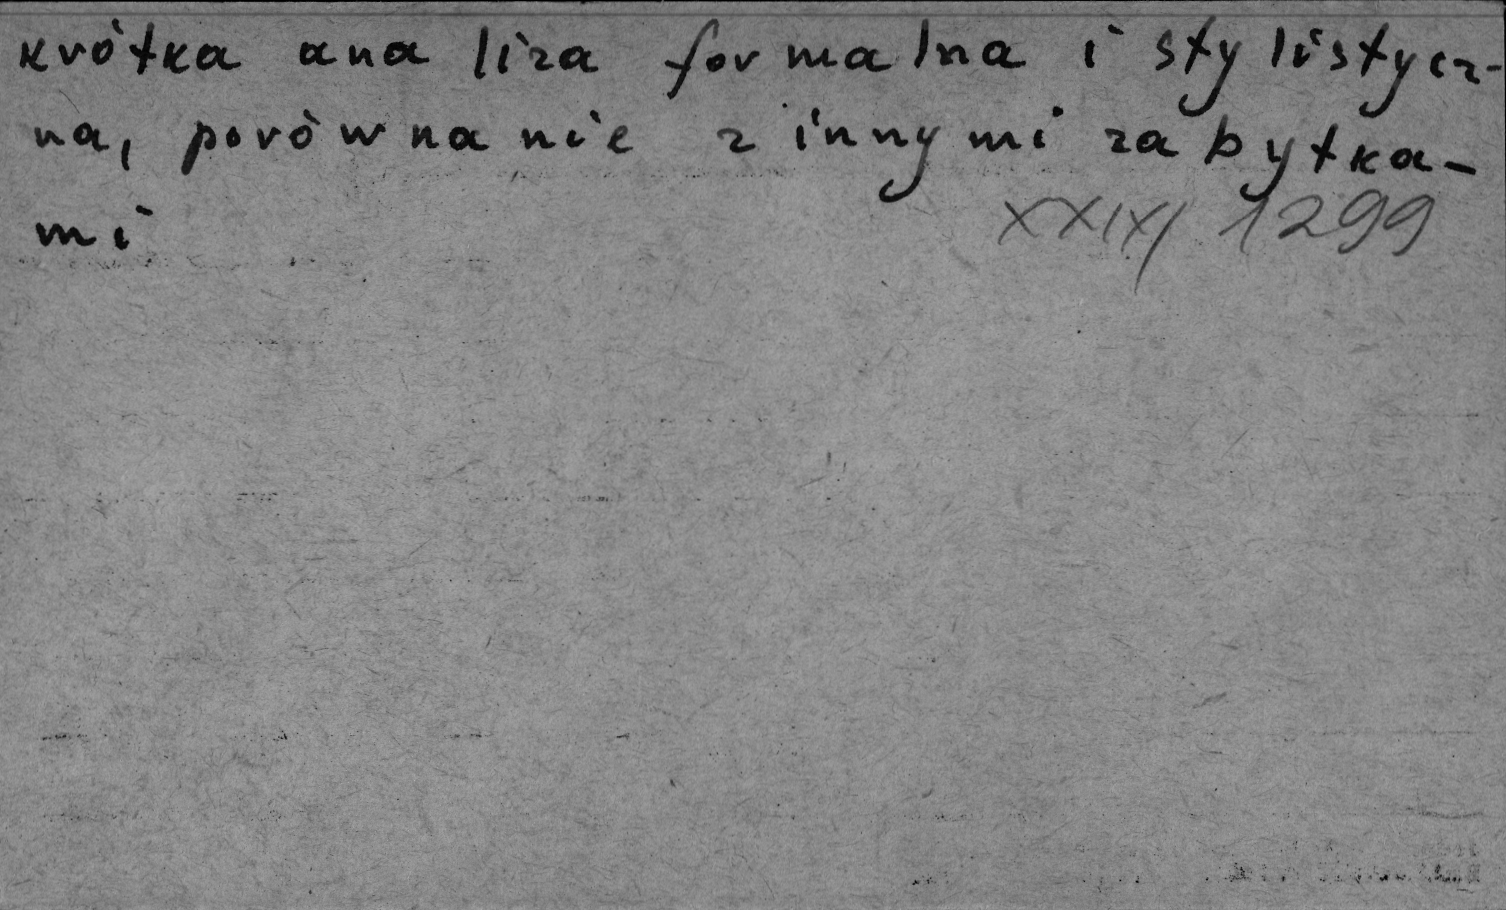 krótka analiza formalna i stylistycz-
na, porównanie z innymi zabytka-
mi
XXIX/1299